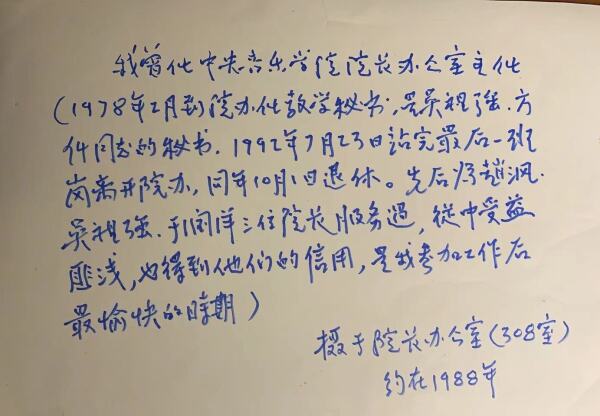 我曾任中央音乐学院院长办公室主任
(1978年2月到院办任教学秘书,是吴祖强.方
仵同志的秘书.1992年7月23日站完最后一班
岗离开院办,同年10月1日退休。先后为趙沨.
吴祖强.于润洋三位院长服务過,從中受益
匪浅,也得到他们的信用,是我参加工作后
最愉快的時期)
摄于院长办公室(308室)
约在1988年